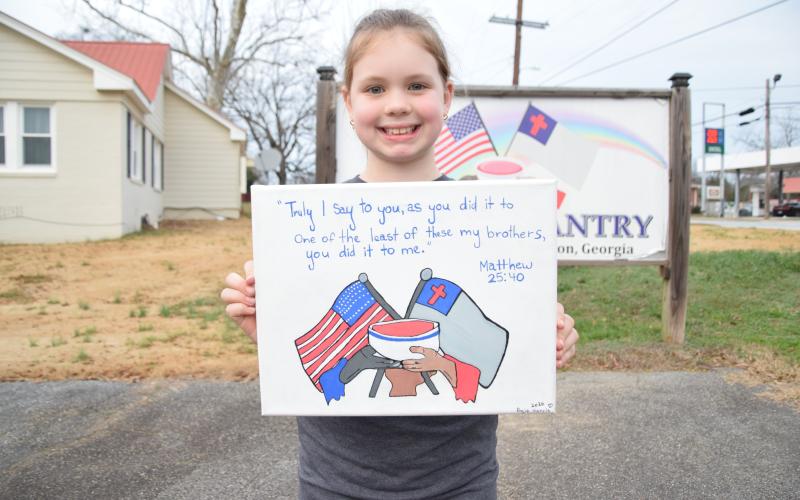 "Truly I say to you, as you did it to
One of the least of these my brothers,
you did it to me."
Matthew
25:40
2020
ANTRY
on, Georgia